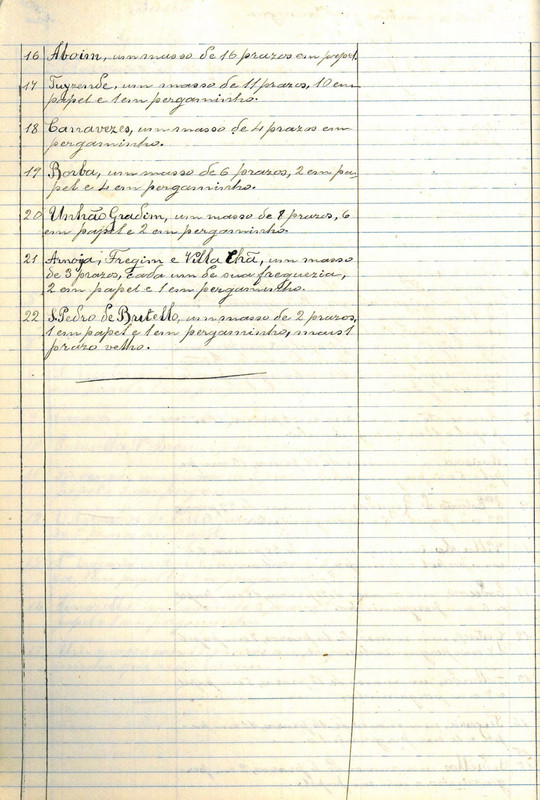 16 Aboim, um masso de 16 prazos em papel.
17 Tuyzende, um masso de 11 prazos, 10 em
papel e 1 em pergaminho.
18 Canavezes, um masso de 4 prazos em
pergaminho.
19 Borba, um masso de 6 prazos, 2 em pa-
pel e 4 em pergaminho.
20 Unhão Gradim, um masso de 8 prazos, 6
em papel e 2 em pergaminho.
21 Arnoja, Fregim e Villa Chã, um masso
de 3 prazos, cada um de sua freguezia,
2 em papel e 1 em pergaminho.
22 S. Pedro de Britello, um masso de 2 prazos,
1 em papel e 1 em pergaminho, mais 1
prazo velho.